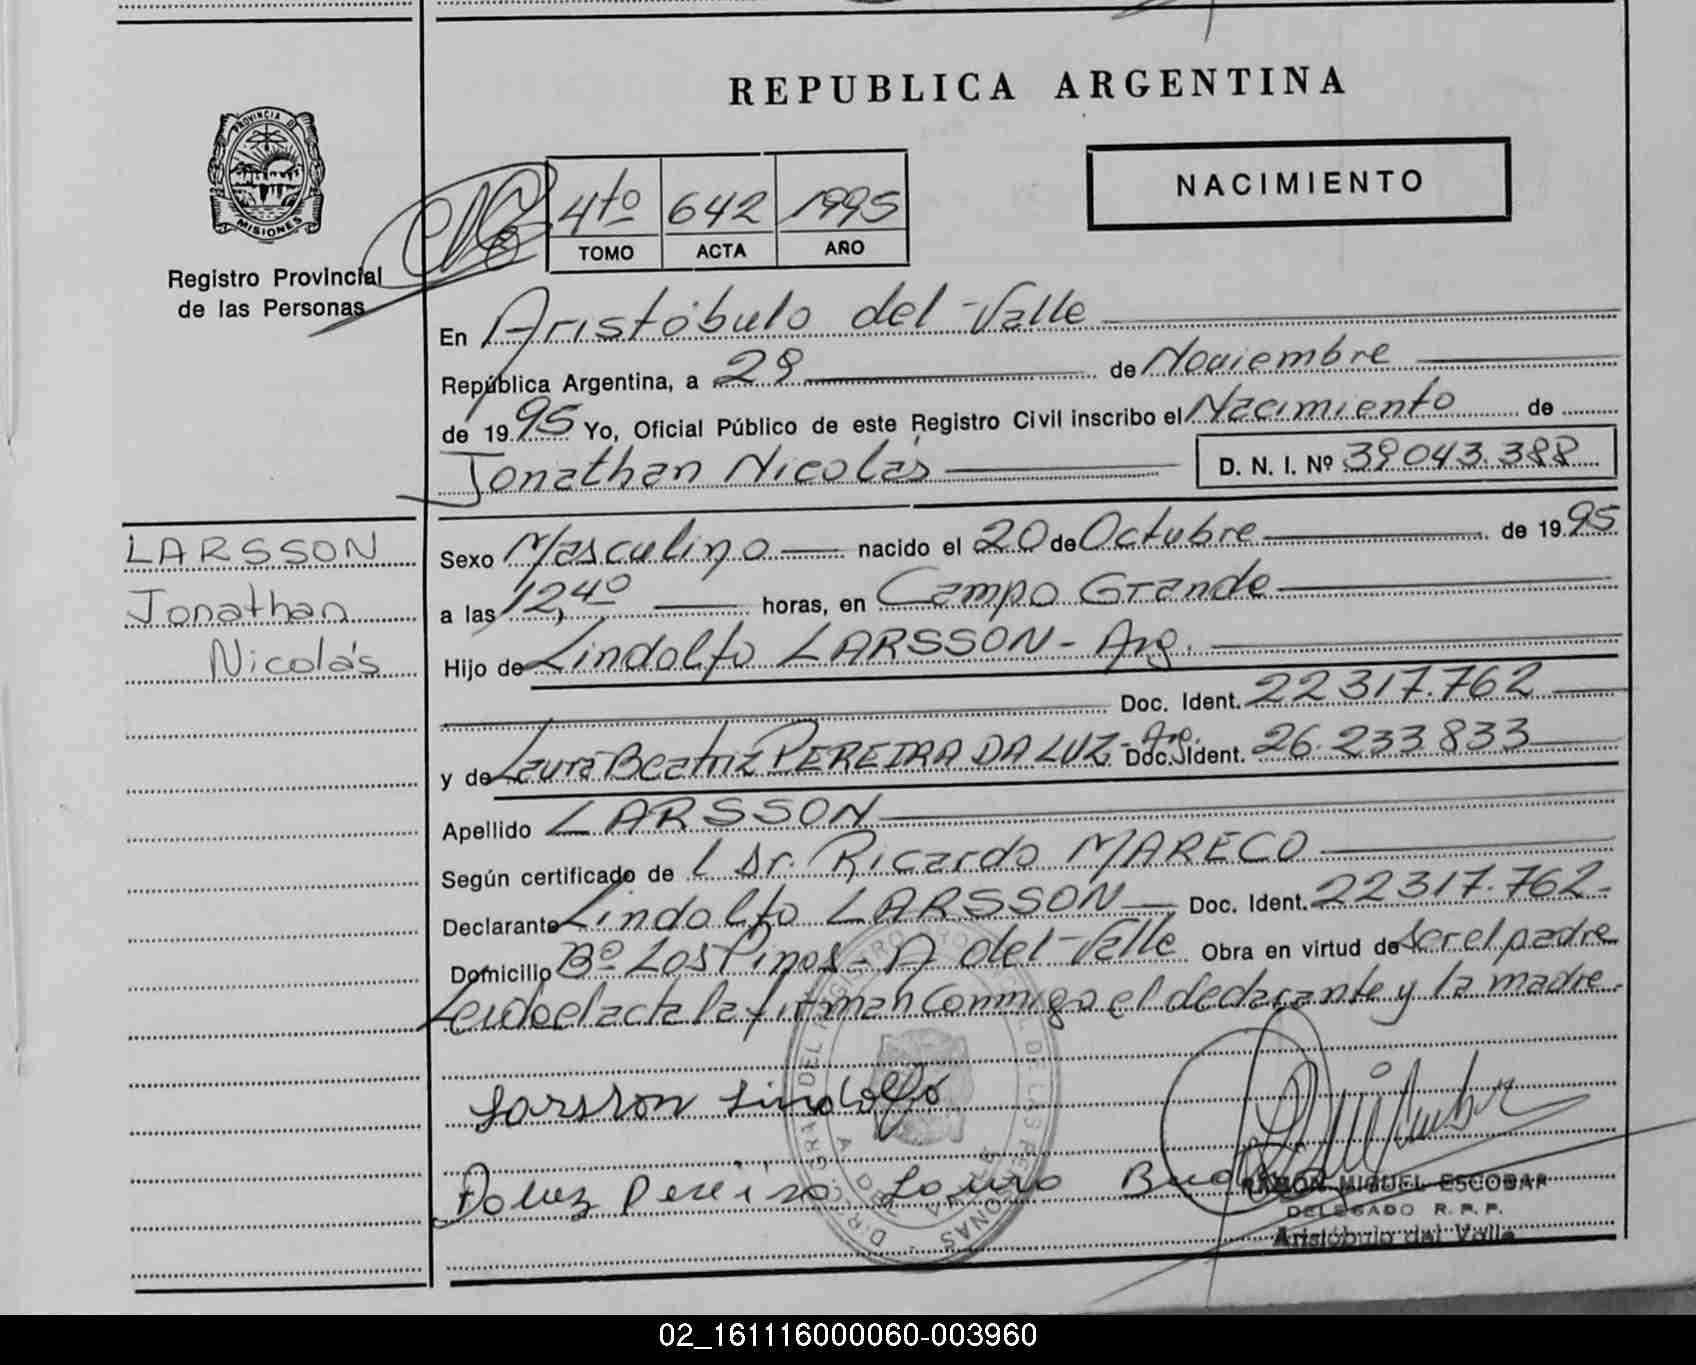 REPUBLICA ARGENTINA
PROVINCIA D
MISIONES
Registro Provincial
de las Personas
NACIMIENTO
4to 642 1995
TOMO ACTA AÑO
En Aristóbulo del Valle
República Argentina, a 29 de Noviembre
de 1995 Yo, Oficial Público de este Registro Civil inscribo el Nacimiento de
Jonathan Nicolás D. N. I. Nº 39043.388
LARSSON
Jonathan
Nicolás
Sexo Masculino nacido el 20 de Octubre de 1995
a las 12,40 horas, en Campo Grande
Hijo de Lindolfo LARSSON - Arg.
Doc. Ident. 22317.762
y de Laura Beatriz PEREIRA DA LUZ - Arg. Doc. Ident. 26.233833
Apellido LARSSON
Según certificado de l Dr. Ricardo MARECO
Declarante Lindolfo LARSSON Doc. Ident. 22317.762-
Domicilio Bº Los Pinos - A del Valle Obra en virtud de ser el padre
Leido el acta la firman conmigo el declarante y la madre.
Larsson Lindolfo
Daluz Pereira Laura
RAMÓN MIGUEL ESCOBAR
DELEGADO R. P. P.
Aristóbulo del Valle
02_161116000060-003960